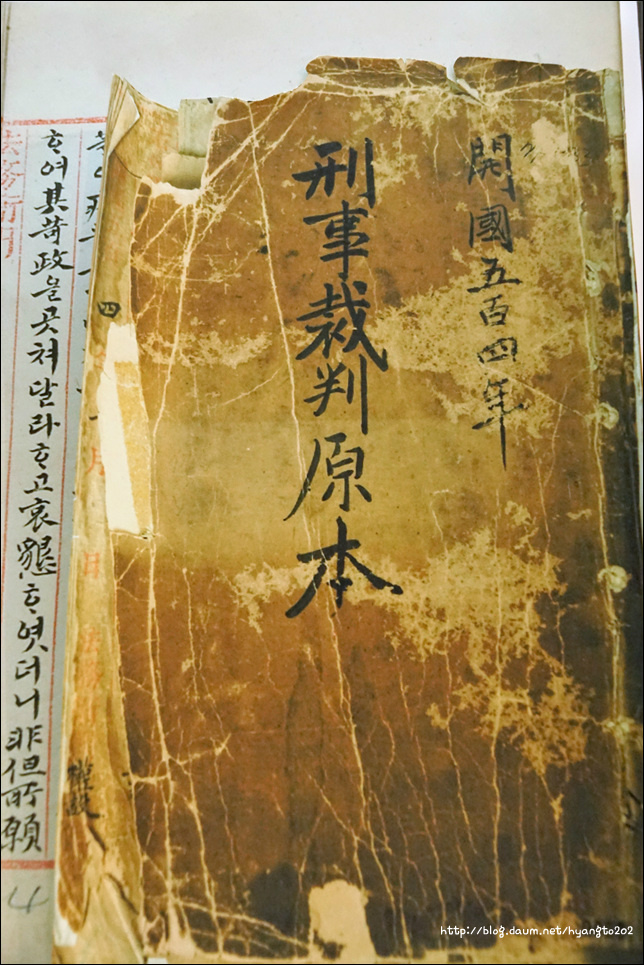 開國五百四年
刑事裁判原本
四
月
日
ᄒᆞ여其苛政을곳쳐달라ᄒᆞ고哀懇ᄒᆞ엿더니非但所願
4
http://blog.daum.net/hyangto202